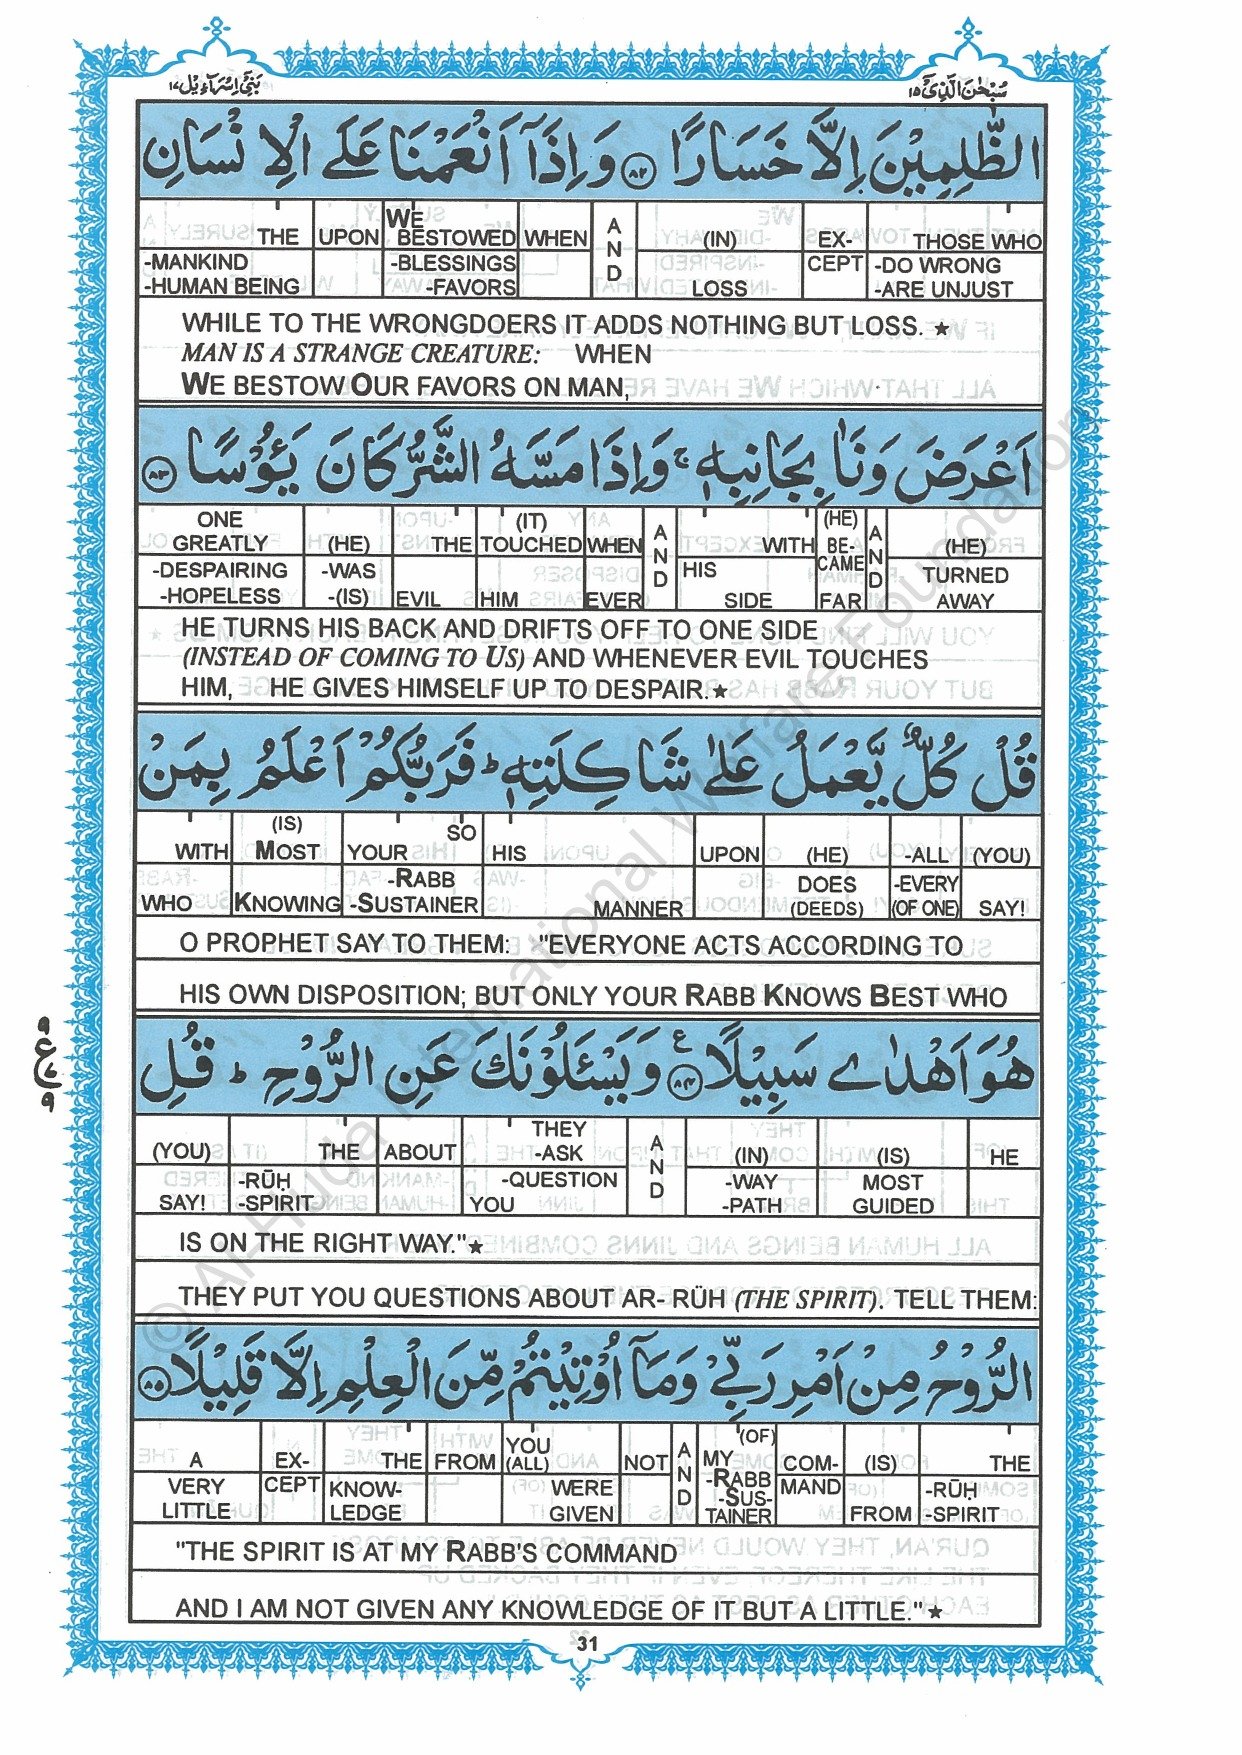 بَنِيْٓ اِسْرَآءِيْل ١٧
سُبْحٰنَ الَّذِيْٓ ١٥
الظّٰلِمِيْنَ اِلَّا خَسَارًا ۝٨٢ وَاِذَآ اَنْعَمْنَا عَلَى الْاِنْسَانِ
THE UPON WE BESTOWED WHEN AND (IN) EX- THOSE WHO
-MANKIND -BLESSINGS CEPT -DO WRONG
-HUMAN BEING -FAVORS LOSS -ARE UNJUST
WHILE TO THE WRONGDOERS IT ADDS NOTHING BUT LOSS. ★
MAN IS A STRANGE CREATURE: WHEN
WE BESTOW OUR FAVORS ON MAN,
اَعْرَضَ وَنَاٰ بِجَانِبِهٖ ۚ وَاِذَا مَسَّهُ الشَّرُّ كَانَ يَـُٔوْسًا ۝٨٣
ONE (IT) (HE)
GREATLY (HE) THE TOUCHED WHEN AND WITH BE- AND (HE)
-DESPAIRING -WAS HIS CAME TURNED
-HOPELESS -(IS) EVIL HIM EVER SIDE FAR AWAY
HE TURNS HIS BACK AND DRIFTS OFF TO ONE SIDE
(INSTEAD OF COMING TO US) AND WHENEVER EVIL TOUCHES
HIM, HE GIVES HIMSELF UP TO DESPAIR.★
قُلْ كُلٌّ يَّعْمَلُ عَلٰى شَاكِلَتِهٖ ؕ فَرَبُّكُمْ اَعْلَمُ بِمَنْ
(IS) SO
WITH MOST YOUR HIS UPON (HE) -ALL (YOU)
-RABB DOES -EVERY
WHO KNOWING -SUSTAINER MANNER (DEEDS) (OF ONE) SAY!
O PROPHET SAY TO THEM: "EVERYONE ACTS ACCORDING TO
HIS OWN DISPOSITION; BUT ONLY YOUR RABB KNOWS BEST WHO
هُوَ اَهْدٰى سَبِيْلًا ۝٨٤ ع وَيَسْـَٔلُوْنَكَ عَنِ الرُّوْحِ ؕ قُلِ
٩ ع ٩
THEY
(YOU) THE ABOUT -ASK AND (IN) (IS) HE
-RŪḤ -QUESTION -WAY MOST
SAY! -SPIRIT YOU -PATH GUIDED
IS ON THE RIGHT WAY."★
THEY PUT YOU QUESTIONS ABOUT AR- RŪH (THE SPIRIT). TELL THEM:
الرُّوْحُ مِنْ اَمْرِ رَبِّيْ وَمَآ اُوْتِيْتُمْ مِّنَ الْعِلْمِ اِلَّا قَلِيْلًا ۝٨٥
YOU (OF)
A EX- THE FROM (ALL) NOT AND MY COM- (IS) THE
VERY CEPT KNOW- WERE -RABB MAND -RŪḤ
LITTLE LEDGE GIVEN -SUS-TAINER FROM -SPIRIT
"THE SPIRIT IS AT MY RABB'S COMMAND
AND I AM NOT GIVEN ANY KNOWLEDGE OF IT BUT A LITTLE."★
31
© Al-Huda International Welfare Foundation